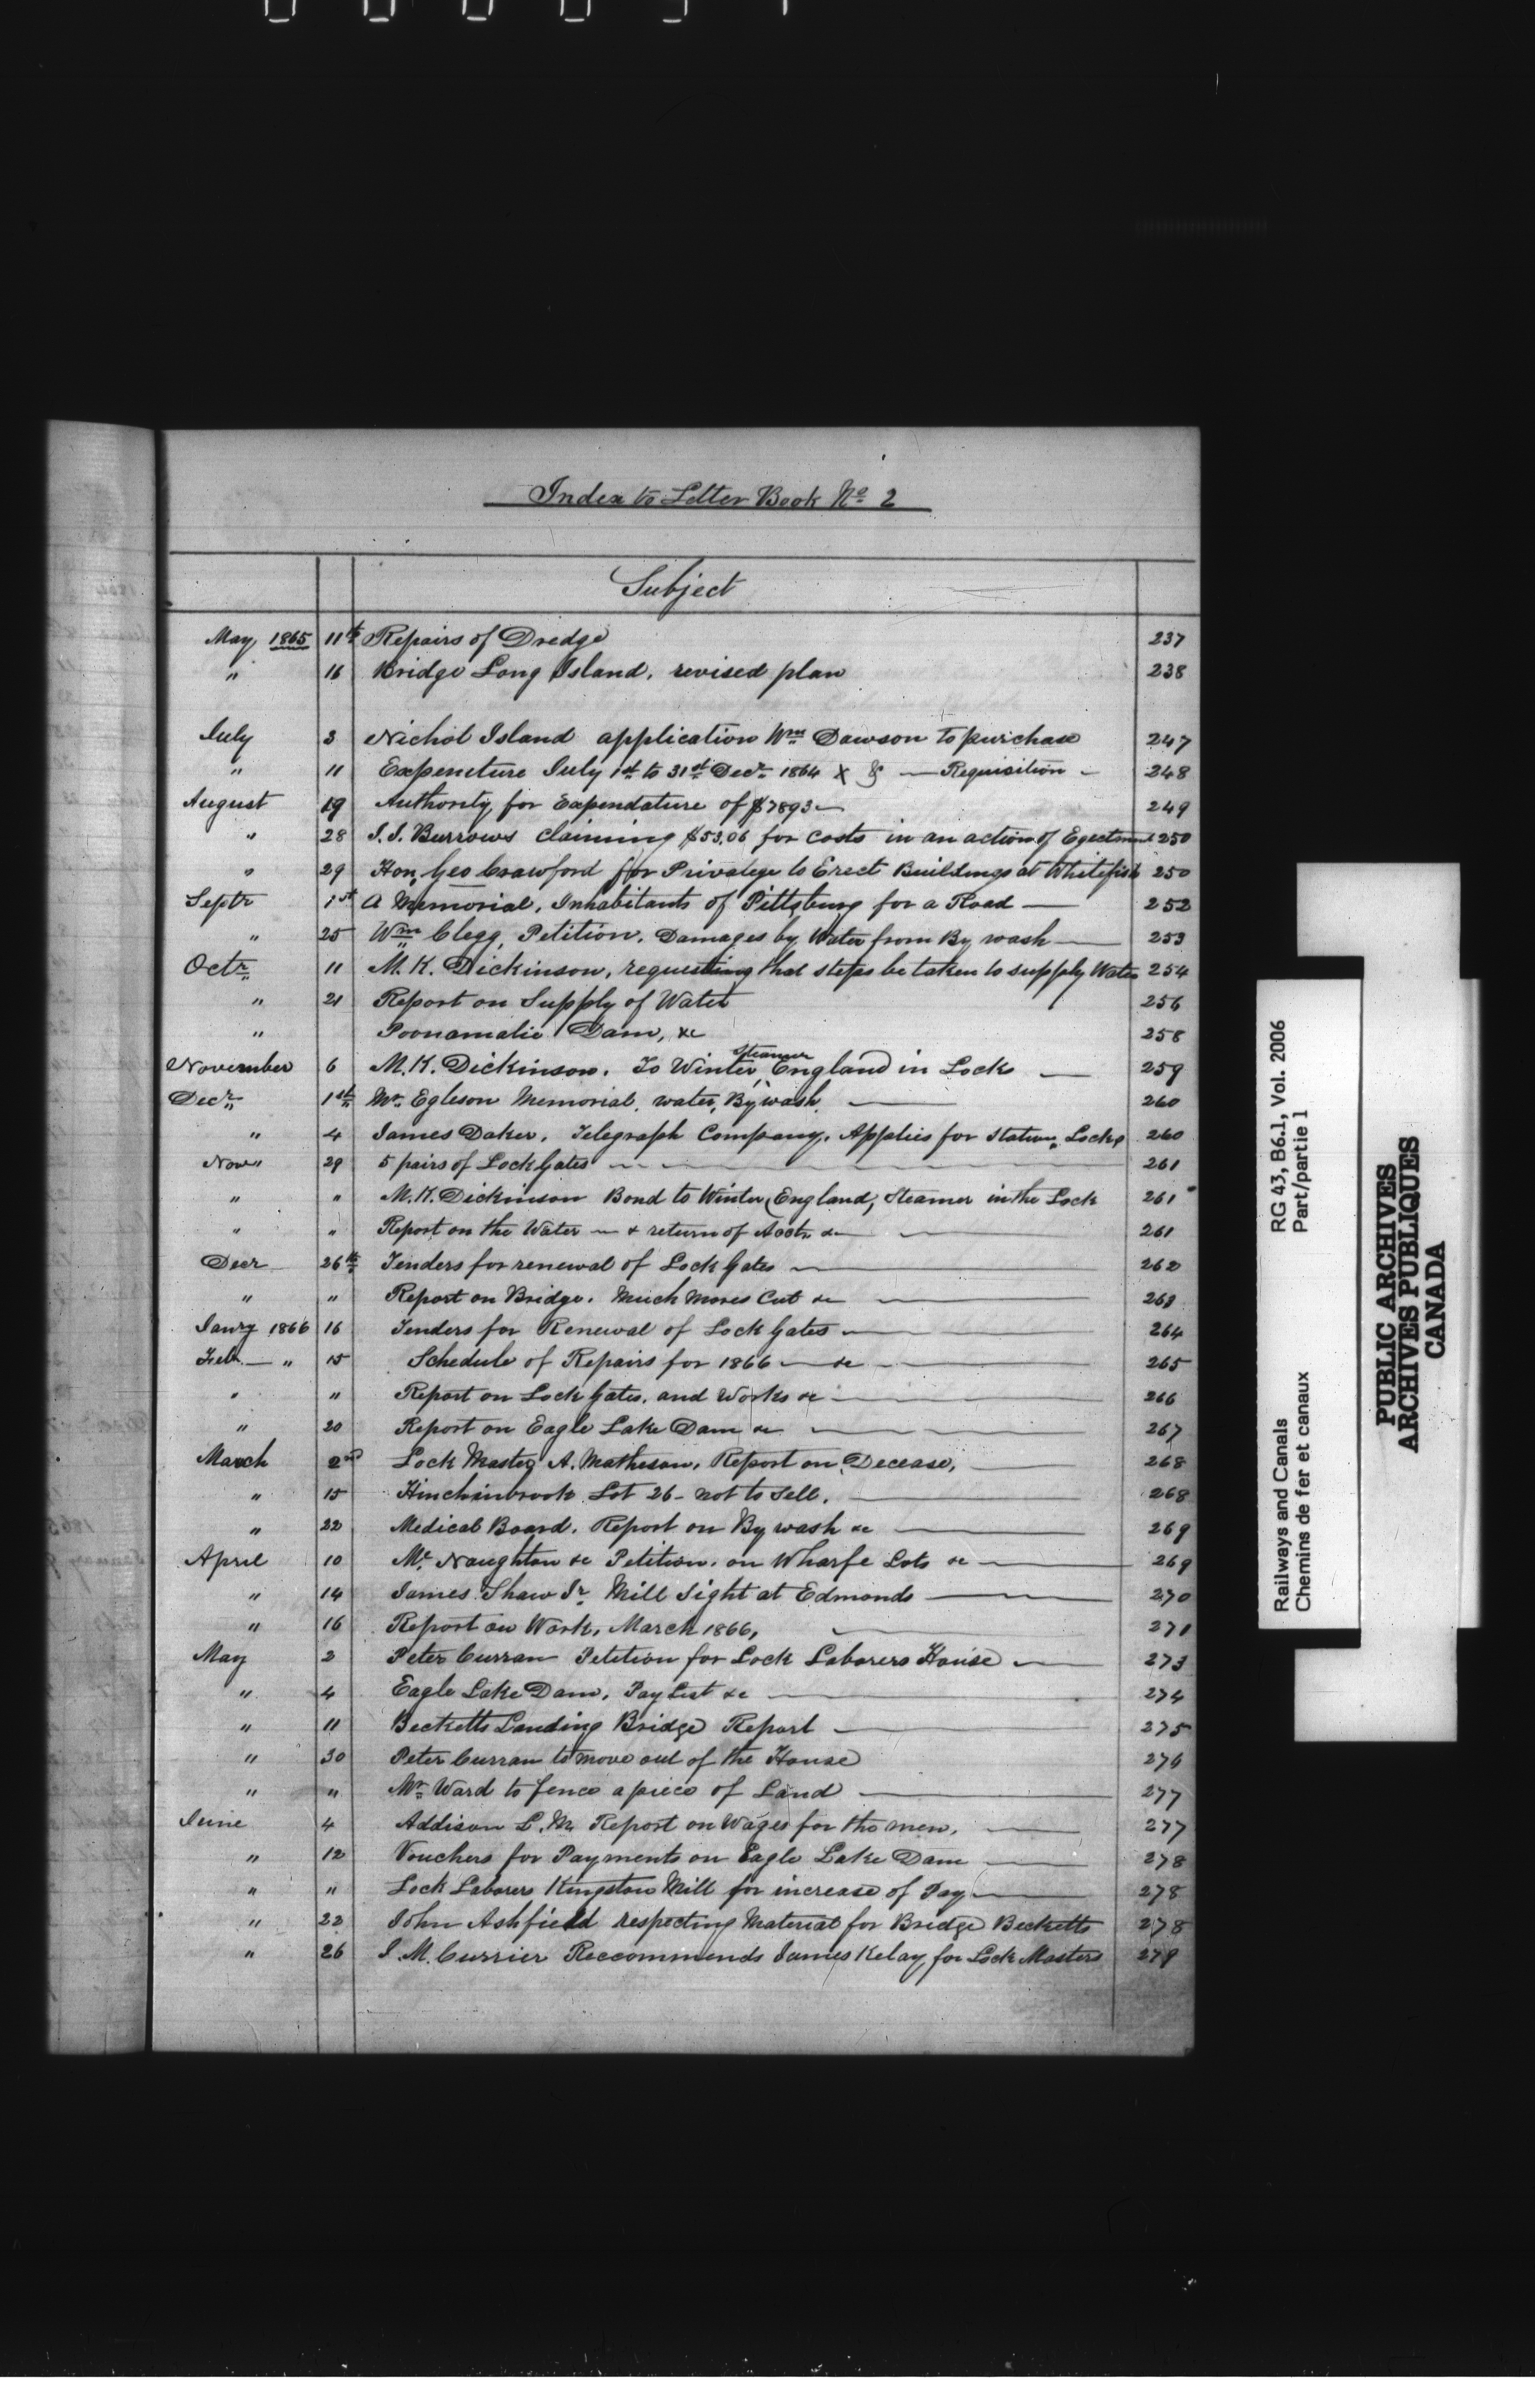 Index to Letter Book No 2
Subject
May 1865 11th Repairs of Dredge 237
" 16 Bridge Long Island, revised plan 238
July 3 Nichol Island application Wm Dawson to purchase 247
" 11 Expenditure July 1st to 31st Decr 1864 X & — Requisition — 248
August 19 Authority for Expendature of $7893 — 249
" 28 J.J. Burrows claiming $53.06 for costs in an action of Egectment 250
" 29 Hon, Geo Crawford for Privalege to Erect Buildings at Whitefish 250
Septr 1st A Memorial, Inhabitants of Pittsburg for a Road — 252
" 25 Wm Clegg, Petition, Damages by Water from By wash — 253
Octr 11 M.K. Dickinson, requesting that steps be taken to supply Water 254
" 21 Report on Supply of Water 256
" Poonamalie Dam, &c 258
November 6 M.K. Dickinson. To Winter, Steamer England in Lock — 259
Decr 1st Mr Egleson Memorial, water, By wash, — 260
" 4 James Daker, Telegraph Company, Applies for Station, Locks 260
Novr 29 5 pairs of Lock Gates — 261
" " M.K. Dickinson Bond to Winter (England, Steamer in the Lock 261
" " Report on the Water — & return of Accts &c — 261
Decr 26th Tenders for renewal of Lock Gates — 262
" " Report on Bridge. Much Mores Cut &c — 263
Jany 1866 16 Tenders for Renewal of Lock Gates — 264
Feb — " 15 Schedule of Repairs for 1866 — &c — 265
" " Report on Lock Gates, and Works &c — 266
" 20 Report on Eagle Lake Dam &c — 267
March 2nd Lock Master A. Matheson, Report on Decease, — 268
" 15 Hinchinbrook Lot 26 - not to sell. — 268
" 22 Medical Board. Report on By wash &c — 269
April 10 Mc Naughton &c Petition, on Wharfe Lots &c — 269
" 14 James Shaw Jr Mill Sight at Edmonds — 270
" 16 Report on Work, March 1866, — 271
May 2 Peter Curran Petition for Lock Laborers House — 273
" 4 Eagle Lake Dam, Pay List &c — 274
" 11 Becketts Landing Bridge Report — 275
" 30 Peter Curran to move out of the House 276
" " Mr Ward to fence a piece of Land — 277
June 4 Addison L.M. Report on Wages for the men, — 277
" 12 Vouchers for Payments on Eagle Lake Dam — 278
" " Lock Laborers Kingston Mill for increase of Pay — 278
" 22 John Ashfield respecting Material for Bridge Becketts 278
" 26 J.M. Currier Reccommends James Kelay for Lock Masters 279
Railways and Canals RG 43, B6.1, Vol. 2006
Chemins de fer et canaux Part/partie 1
PUBLIC ARCHIVES
ARCHIVES PUBLIQUES
CANADA